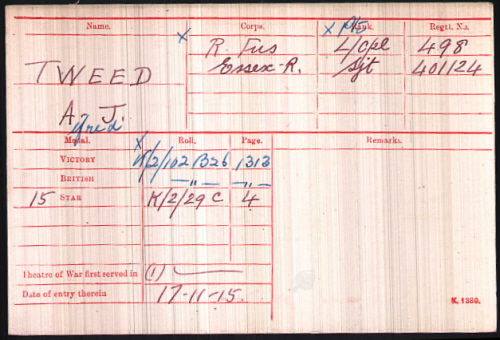 Name. Corps. Rank. Regtl. No.
x R. Fus x Pte L/Cpl 498
TWEED Essex R. Sjt 401124
A. J.
Medal. Roll. Page. Remarks.
VICTORY K/2/102 B26 1313
BRITISH —"— —"—
15 STAR K/2/29 C 4
Theatre of War first served in (1)
Date of entry therein 17-11-15.
K. 1380.